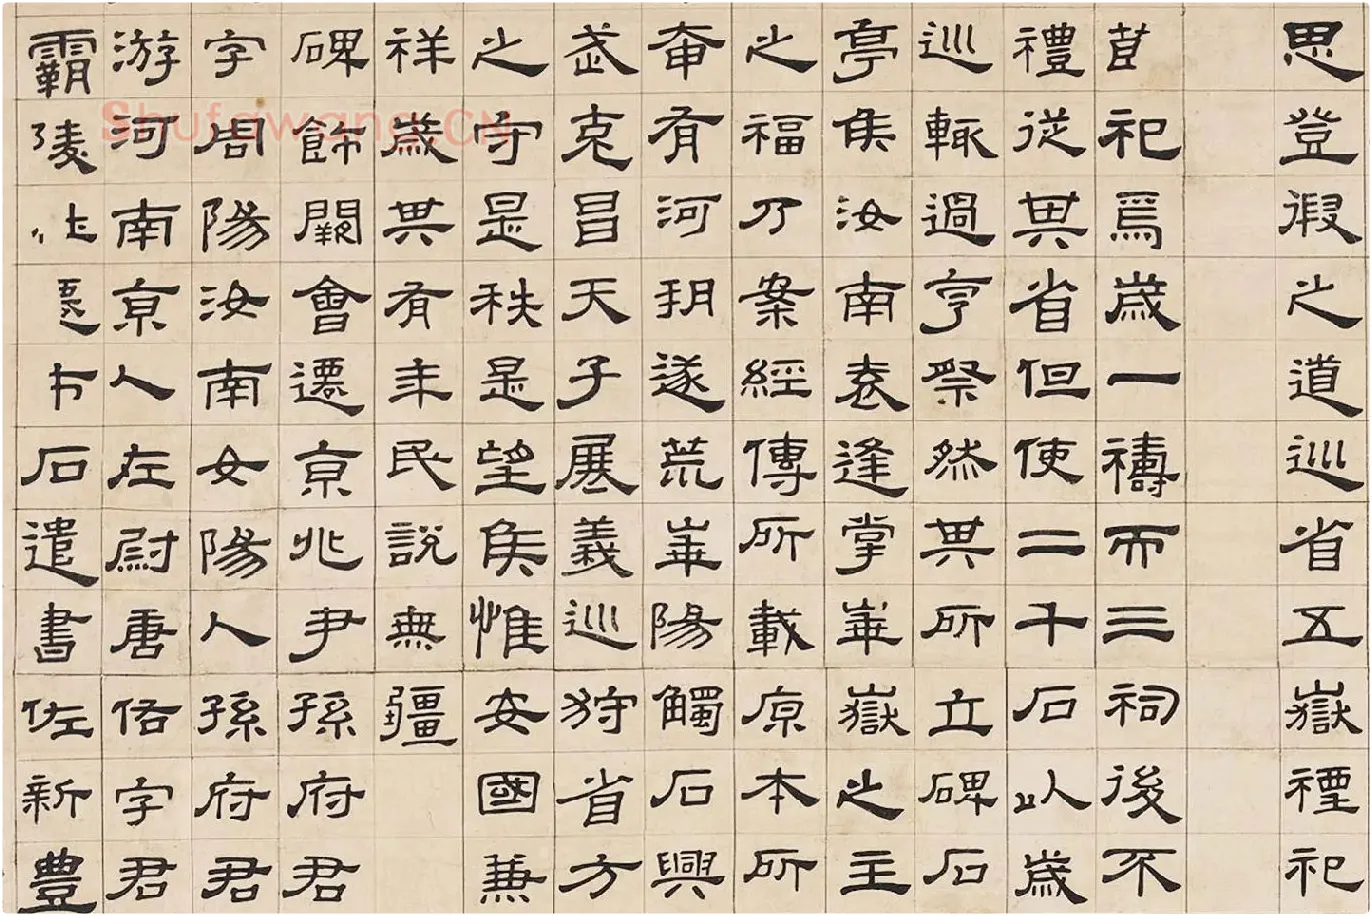 思登徦之道巡省五嶽禋祀
祀焉歲一禱而三祠後不
禮從其省但使二千石以歲
巡輒過亨祭然其所立碑石
亭矦汝南袁逢掌華嶽之主
之福乃案經傳所載原本所
奄有河朔遂荒華陽觸石興
武克昌天子展義巡狩省方
之守是秩是望矦惟安國兼
祥歲其有年民說無疆
碑飾闕會遷京兆尹孫府君
字周陽汝南女陽人孫府君
游河南京人左尉唐佑字君
霸陵杜遷市石遣書佐新豐
Shufawang.CN